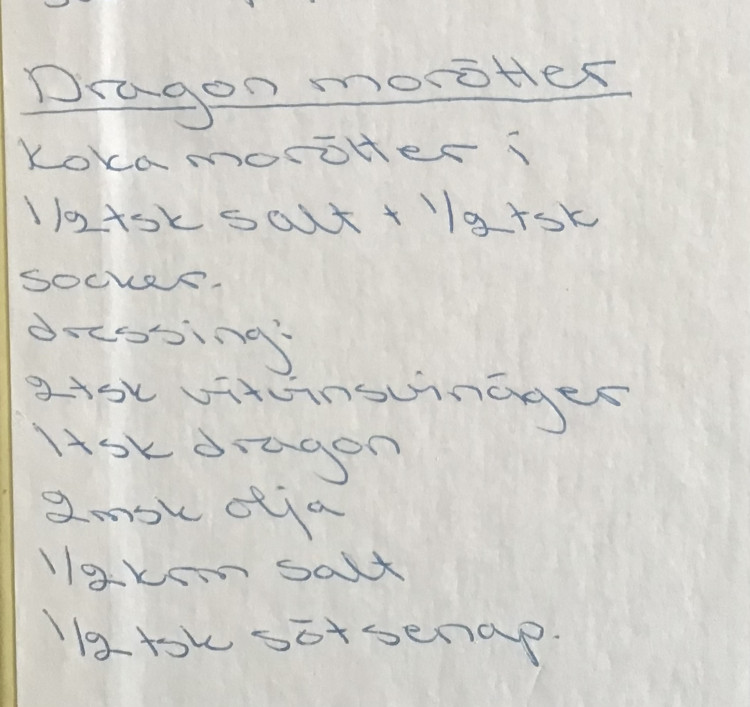 Dragon morötter
Koka morötter i
1/2 tsk salt + 1/2 tsk
socker.
dressing:
2 tsk vitvinsvinäger
1 tsk dragon
2 msk olja
1/2 krm salt
1/2 tsk sötsenap.